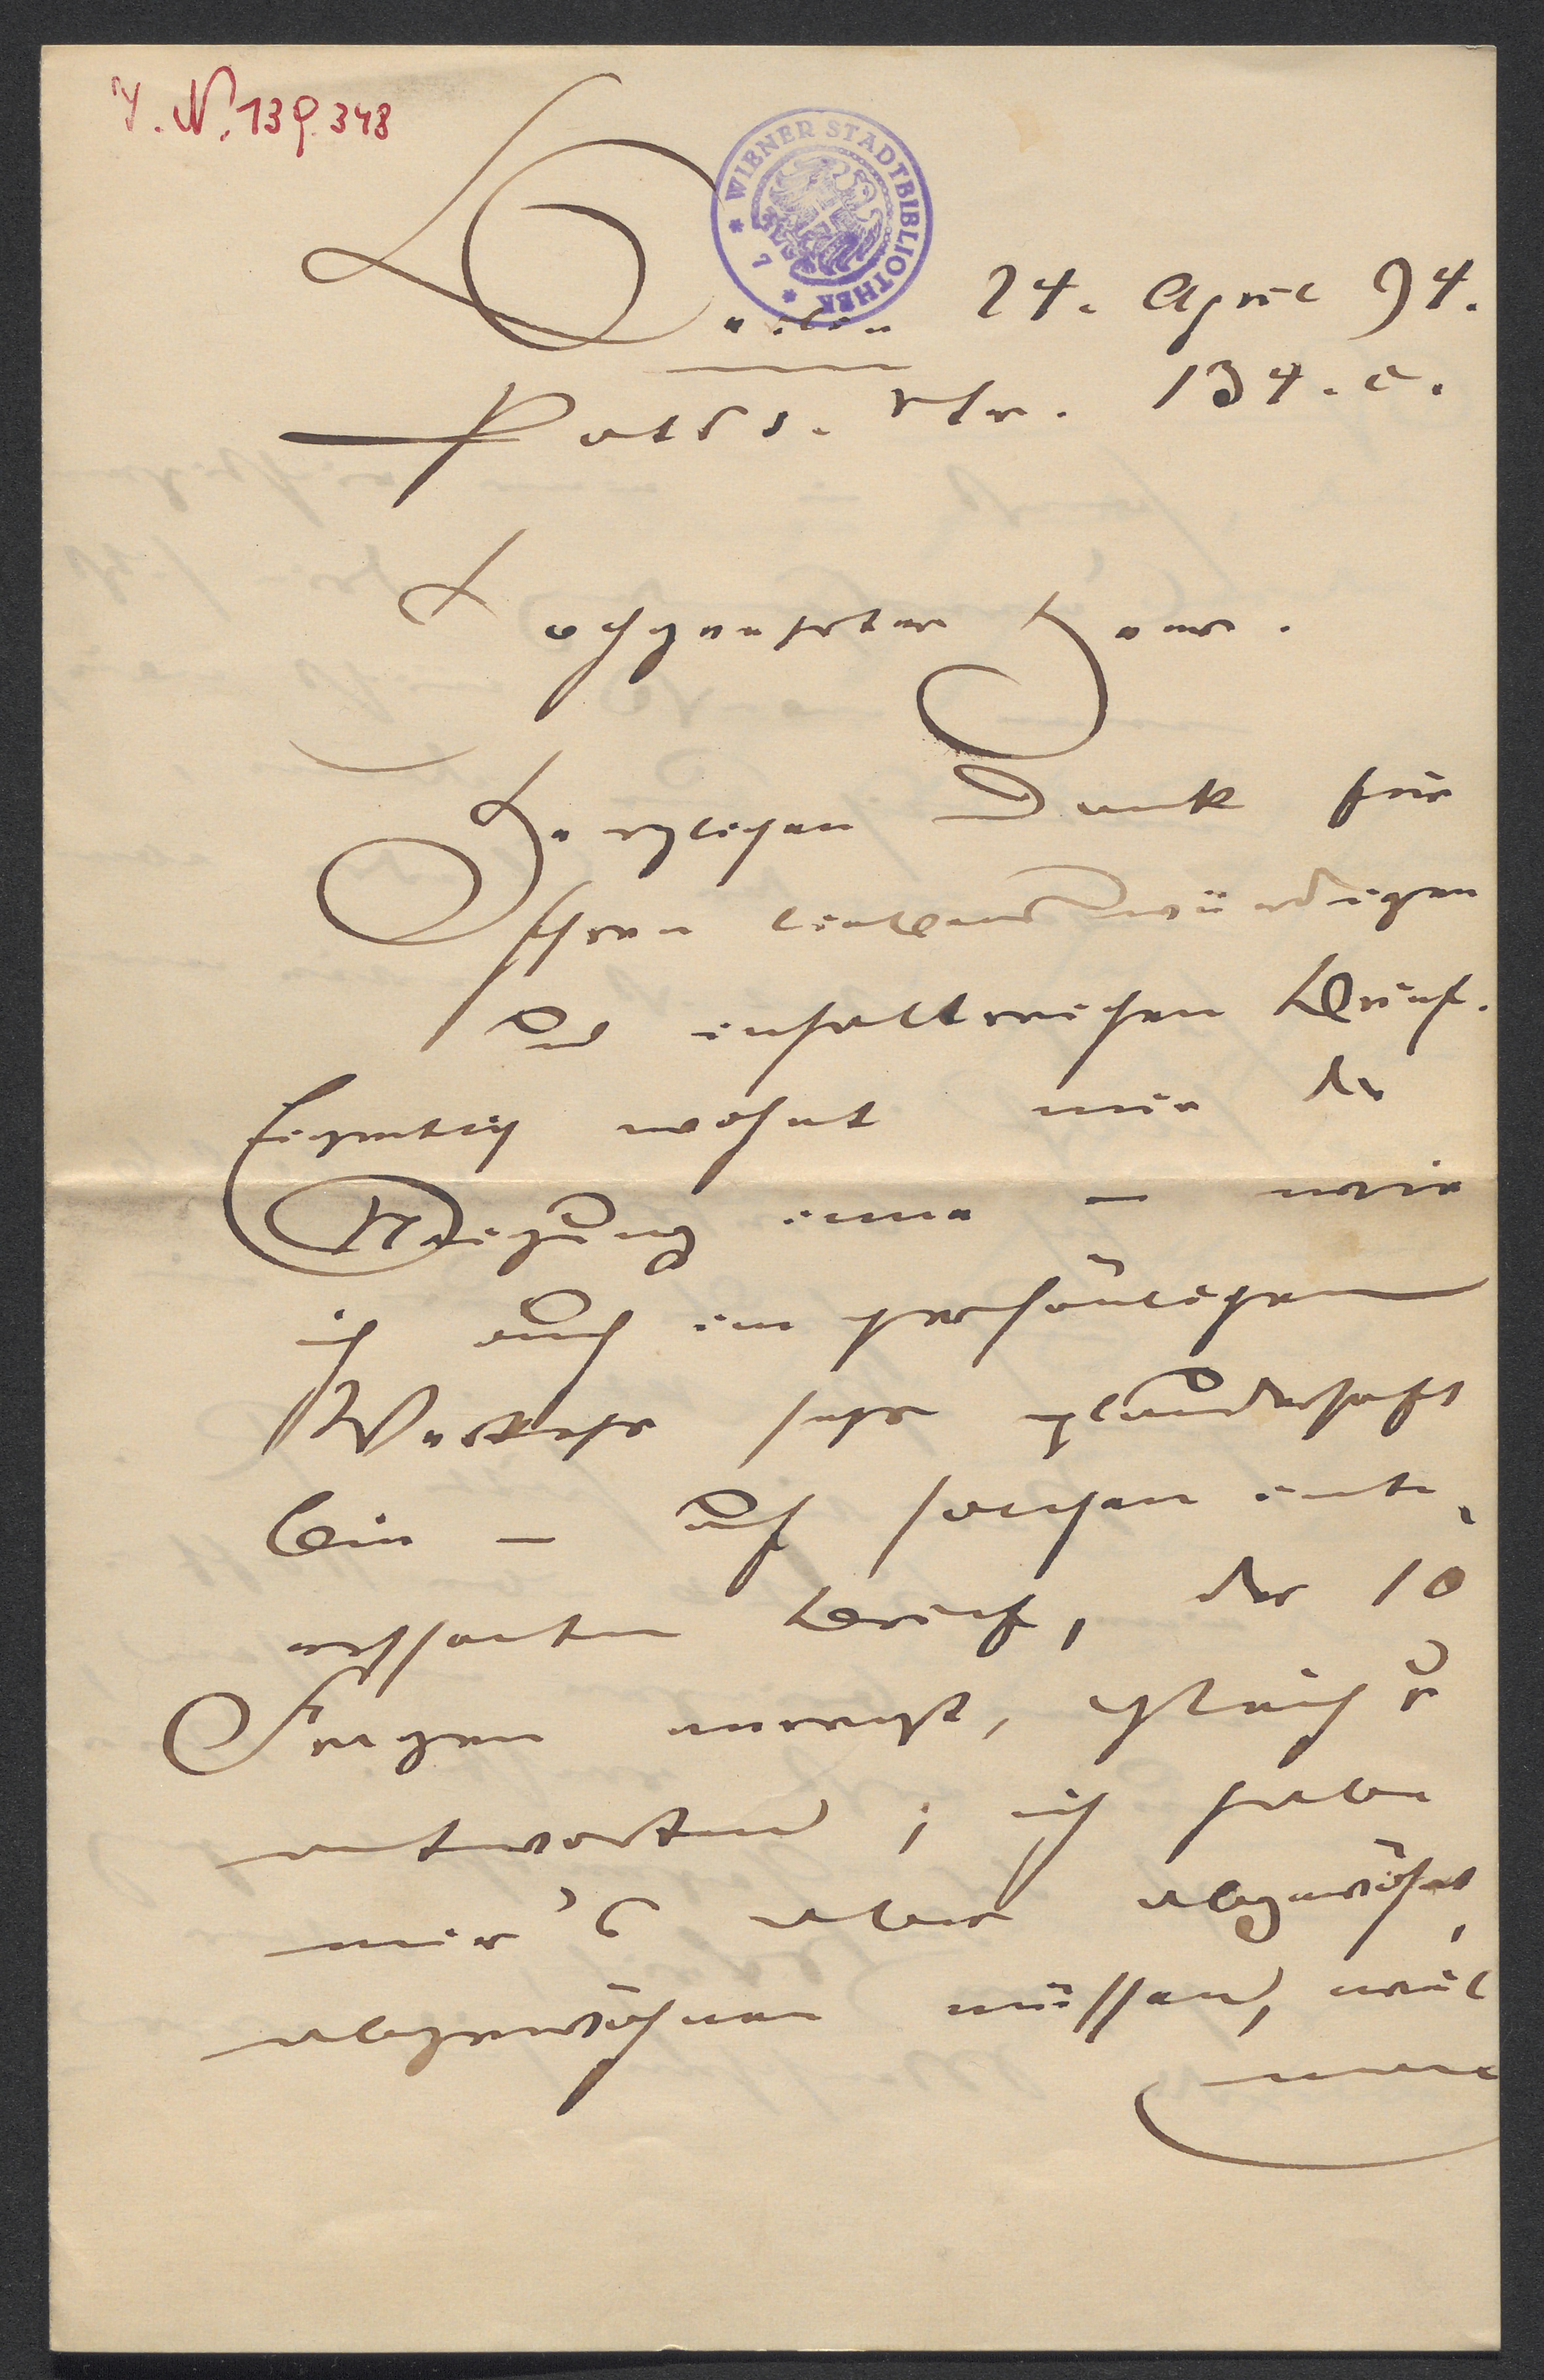 I. N. 139.348
WIENER STADTBIBLIOTHEK
7
Berlin 24. April 94.
Potsd. Str. 134. c.
Hochgeehrter Herr.
Herzlichen Dank für
Ihren liebenswürdigen
und inhaltreichen Brief.
Eigentlich wohnt mir die
Neigung inne – wie
ich auch im persönlichen
Verkehr sehr plauderhaft
bin – auf solchen inte-
ressanten Brief, der 10
Fragen anregt, gleich zu
antworten; ich habe
mir's aber abgewöhnt,
abgewöhnen müssen, weil